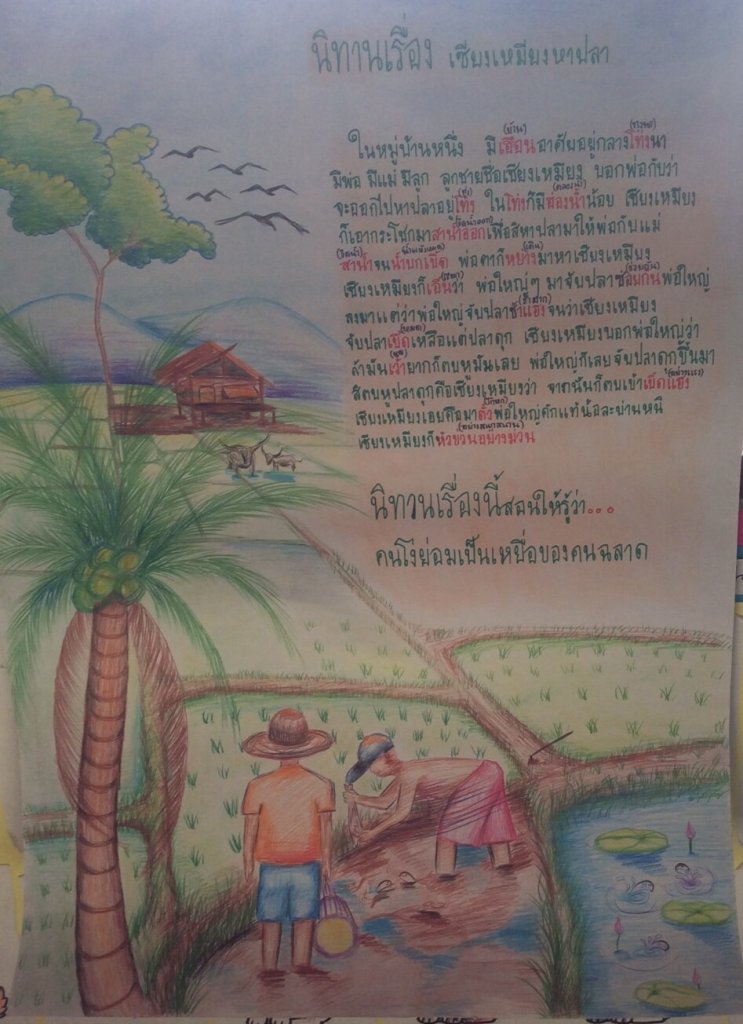 นิทานเรื่อง เซียงเหมี่ยงหาปลา
(บ้าน) (ทุ่งนา)
ในหมู่บ้านหนึ่ง มีเฮือนอาศัยอยู่กลางโท่งนา
มีพ่อ มีแม่ มีลูก ลูกชายชื่อเซียงเหมี่ยง บอกพ่อกับว่า
(ทุ่ง)
จะออกไปหาปลาอยู่โท่ง ในโท่งก็มีฮ่องน้ำน้อย เซียงเหมี่ยง
ก็เอากระโซ่มาสาน้ำออกเพื่อสิหาปลามาให้พ่อกับแม่
(วิดน้ำ) (เดิน)
สาน้ำจนน้ำบกเบิ่ด พ่อตาก็หย่างมาหาเซียงเหมี่ยง
เซียงเหมี่ยงก็เอิ้นว่า พ่อใหญ่ๆ มาจับปลาซ่อยกันพ่อใหญ่
ลงมาแต่ว่าพ่อใหญ่จับปลาช้าแฮงจนว่าเซียงเหมี่ยง
(หมด)
จับปลาเบิ่ดเหลือแต่ปลาดุก เซียงเหมี่ยงบอกพ่อใหญ่ว่า
ถ้ามันเว้ายากก็ตบหูมันเลย พ่อใหญ่ก็เลยจับปลาดุกขึ้นมา
สิตบหูปลาดุกคือเซียงเหมี่ยงว่า จากนั้นก็ตบเข้าเบิ่ดแฮง
เซียงเหมี่ยงเอยคือมาตั๋วพ่อใหญ่คักแท้น้อละย่านหนิ
เซียงเหมี่ยงก็หัวขวนอย่างม่วน
นิทานเรื่องนี้สอนให้รู้ว่า...
คนโง่ย่อมเป็นเหยื่อของคนฉลาด